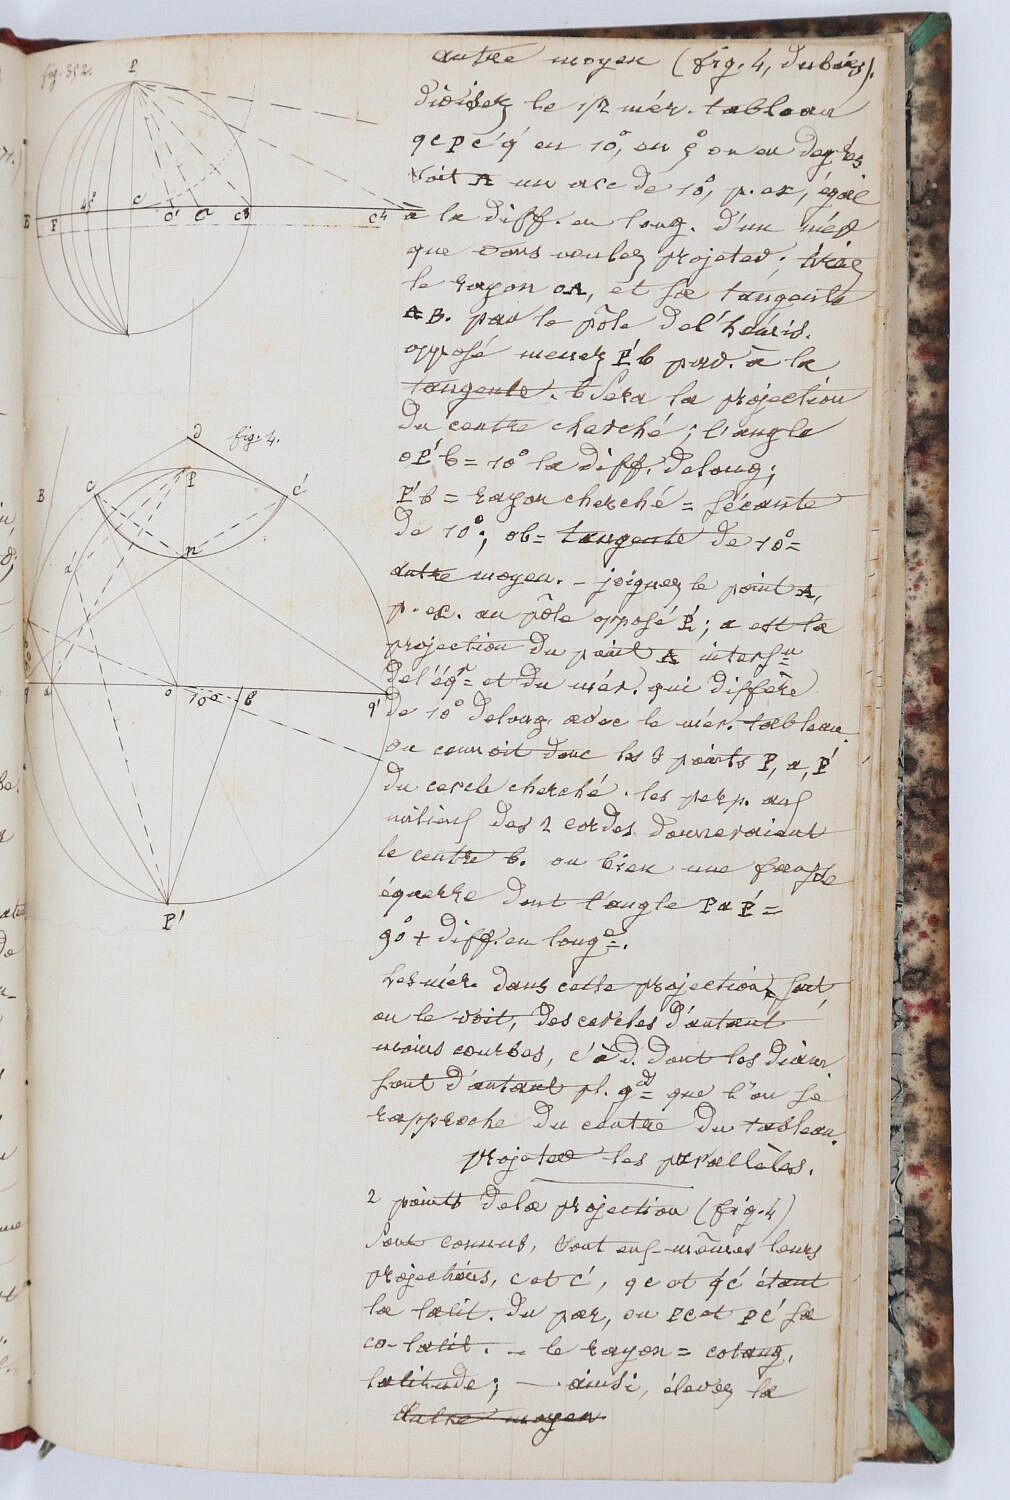 fig. 352.
P
E
F
45°
C
O'
O
C3
C4
autre moyen (fig. 4, du bas).
divisez le 1/2 mér. tableau
qcPc'q' en 10°, ou 5° ou en degrés
soit A un arc de 10°, p. ex, égal
à la diff. en long. d'un mér
que vous voulez projeter; tirez
le rayon oA, et sa tangente
AB. par le pôle de l'hémis.
opposé menez P'b par. à la
tangente. b sera la projection
du centre cherché; l'angle
oP'b = 10° la diff. de long;
P'b = rayon cherché = sécante
de 10°; ob = tangente de 10°=
autre moyen. – joignez le point A,
p. ex. au pôle opposé P'; a est la
projection du point A inters.n
de l'éq.r et du mér. qui diffère
de 10° de long. avec le mér. tableau.
on connoit donc les 3 points P, a, P'
du cercle cherché. les perp. aux
milieux des 2 cordes donneraient
le centre b. ou bien une fausse
équerre dont l'angle PaP' =
90° + diff. en long.e.
Les mér. dans cette projection sont,
on le voit, des cercles d'autant
moins courbes, c'à d. dont les diam.
sont d'autant pl. gd que l'on se
rapproche du centre du tableau.
projeter les parallèles.
2 points de la projection (fig. 4)
sont connus, sont eux-mêmes leurs
projections, c et c', qc et q'c' étant
la latit. du par, ou Pc et Pc' sa
co-latit. – le rayon = cotang.
latitude; – ainsi, élevez la
autre moyen
d
fig. 4.
B
c
P
c'
n
a
o
10°
b
q'
P'